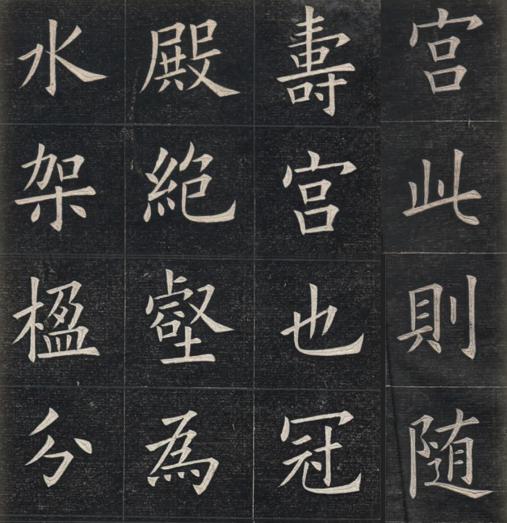 宮此則随
壽宮也冠
殿絶壑為
水架楹分